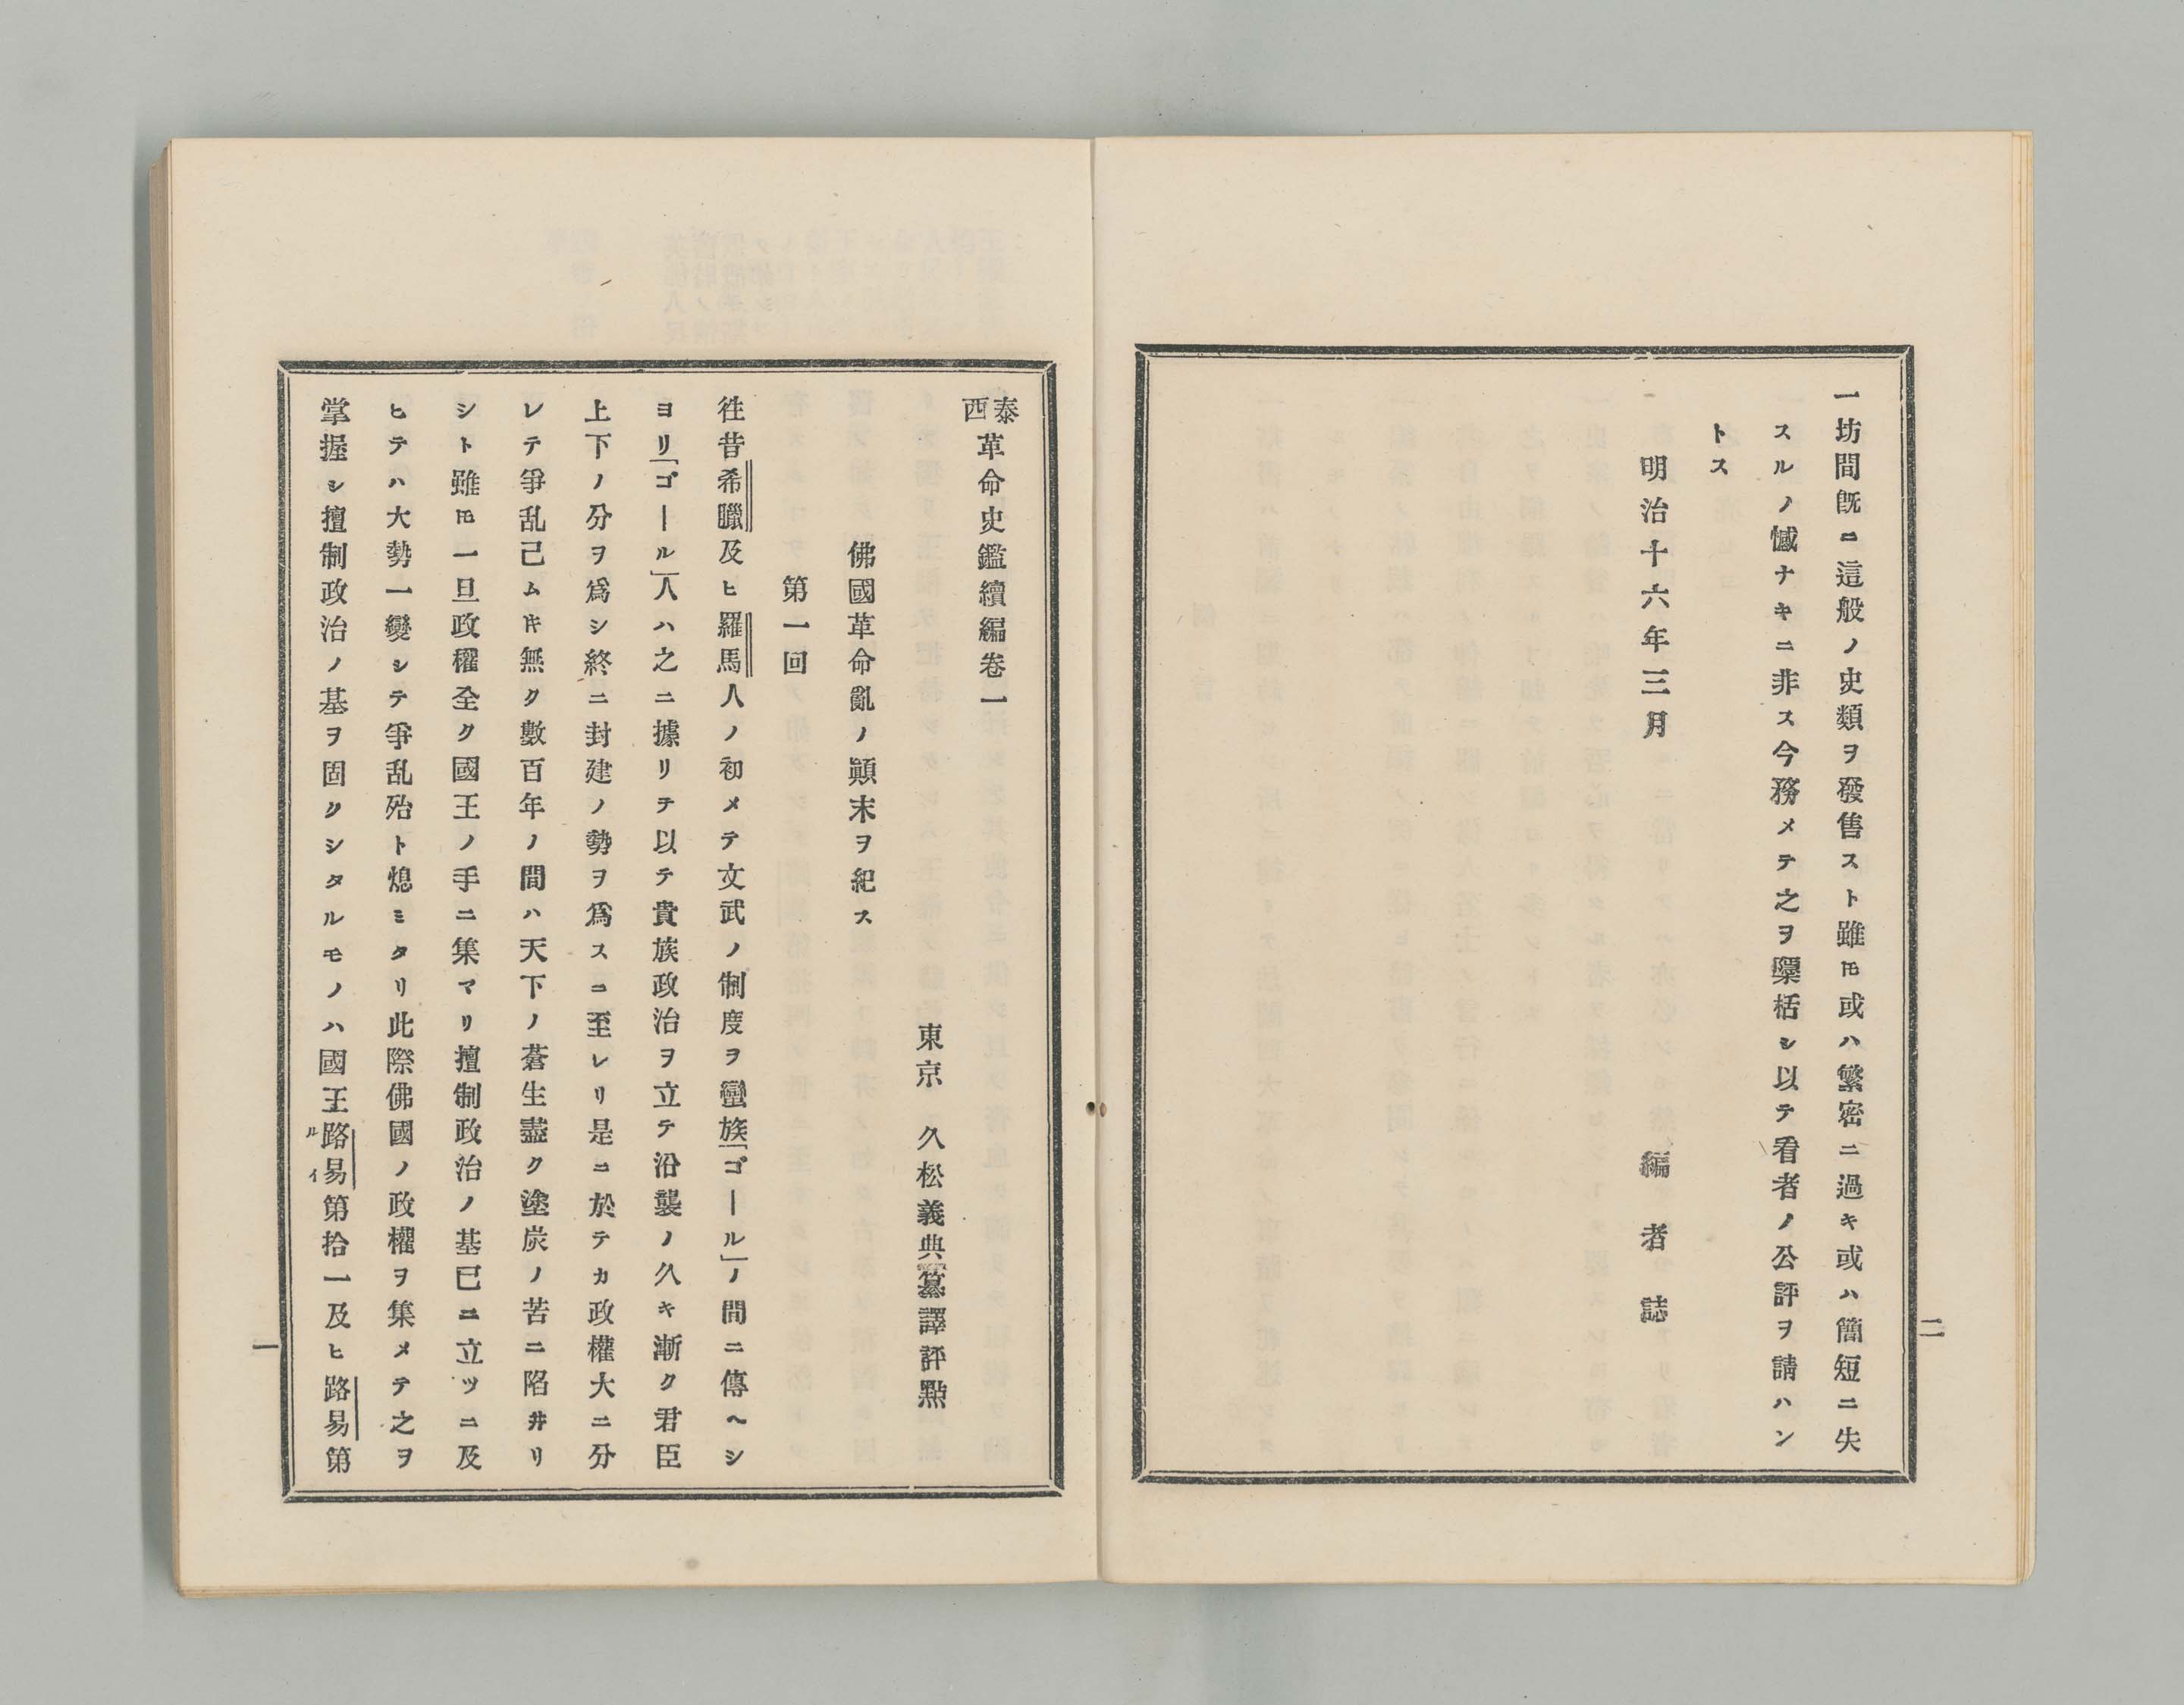 一坊間旣ニ這般ノ史類ヲ發售スト雖𪜈或ハ繁密ニ過キ或ハ簡短ニ失
スルノ憾ナキニ非ス今務メテ之ヲ檃栝シ以テ看者ノ公評ヲ請ハン
トス
明治十六年三月 編者誌
二
泰西革命史鑑續編卷一
東京 久松義典纂譯評點
佛國革命亂ノ顚末ヲ紀ス
第一回
徃昔希臘及ヒ羅馬人ノ初メテ文武ノ制度ヲ蠻族「ゴール」ノ間ニ傳ヘシ
ヨリ「ゴール」人ハ之ニ據リテ以テ貴族政治ヲ立テ沿襲ノ久キ漸ク君臣
上下ノ分ヲ爲シ終ニ封建ノ勢ヲ爲スニ至レリ是ニ於テカ政權大ニ分
レテ爭乱已ムキ無ク數百年ノ間ハ天下ノ蒼生盡ク塗炭ノ苦ニ陷井リ
シト雖𪜈一旦政權全ク國王ノ手ニ集マリ擅制政治ノ基已ニ立ツニ及
ヒテハ大勢一變シテ爭乱殆ト熄ミタリ此際佛國ノ政權ヲ集メテ之ヲ
掌握シ擅制政治ノ基ヲ固クシタルモノハ國王路易第拾一及ヒ路易第
ルイ
一